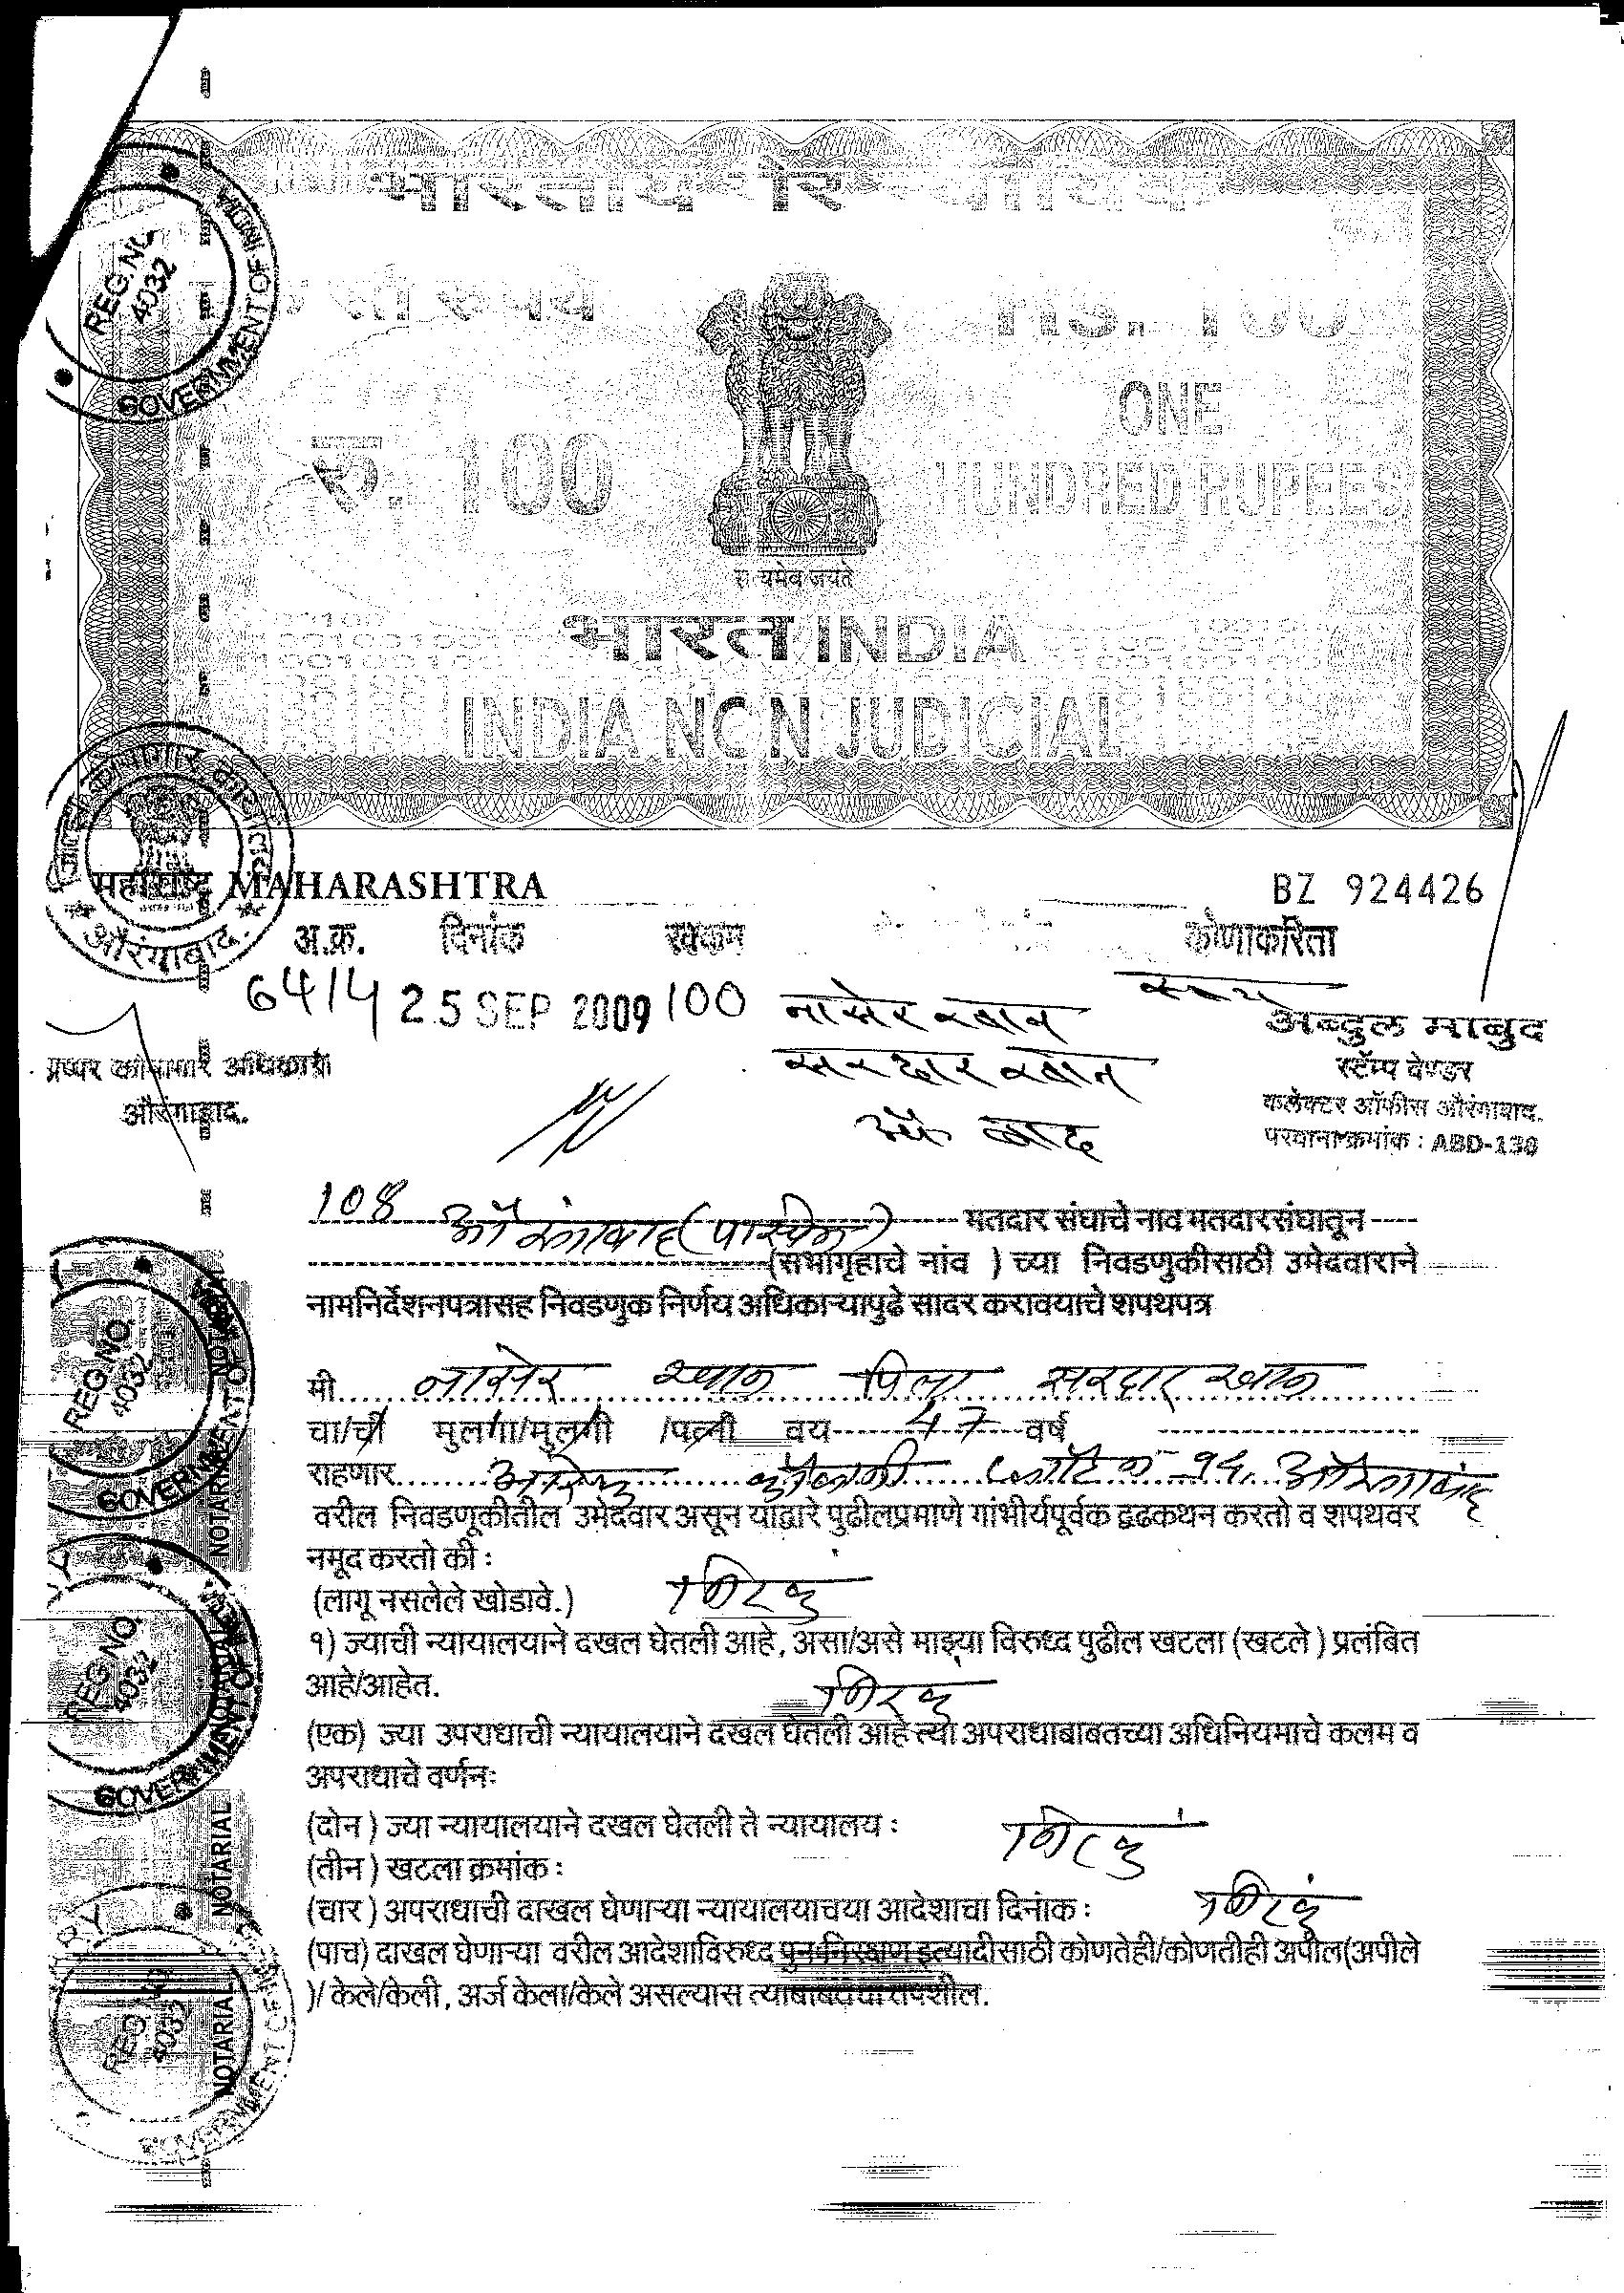 भारतीय गैर न्यायिक
एक सौ रुपये
RS. 100
रु. 100
ONE
HUNDRED RUPEES
सत्यमेव जयते
भारत INDIA
INDIA NON JUDICIAL
REG.NO. 4032
GOVERNMENT OF INDIA
महाराष्ट्र MAHARASHTRA
BZ 924426
औरंगाबाद.
अ.क्र. दिनांक रक्कम कोणाकरिता
6414 25 SEP 2009 100 नासेर खान
सरदार खान
अब्दुल माबुद
स्टॅम्प वेण्डर
कलेक्टर ऑफीस औरंगाबाद.
परवाना क्रमांक : ABD-130
औरंगाबाद.
108 औरंगाबाद (पश्चिम) मतदार संघाचे नाव मतदारसंघातून
(सभागृहाचे नांव ) च्या निवडणुकीसाठी उमेदवाराने
नामनिर्देशनपत्रासह निवडणुक निर्णय अधिकाऱ्यापुढे सादर करावयाचे शपथपत्र
मी नासेर खान पिता सरदार खान
चा/ची मुलगा/मुलगी /पत्नी वय 47 वर्ष
राहणार कॉलनी औरंगाबाद
वरील निवडणूकीतील उमेदवार असून याद्वारे पुढीलप्रमाणे गांभीर्यपूर्वक दृढकथन करतो व शपथवर
नमूद करतो की :
(लागू नसलेले खोडावे.) निरंक
१) ज्याची न्यायालयाने दखल घेतली आहे, असा/असे माझ्या विरुध्द पुढील खटला (खटले ) प्रलंबित
आहे/आहेत. निरंक
(एक) ज्या उपराधाची न्यायालयाने दखल घेतली आहे त्या अपराधाबाबतच्या अधिनियमाचे कलम व
अपराधाचे वर्णनः
(दोन ) ज्या न्यायालयाने दखल घेतली ते न्यायालय : निरंक
(तीन ) खटला क्रमांक :
(चार ) अपराधाची दाखल घेणाऱ्या न्यायालयाचया आदेशाचा दिनांक : निरंक
(पाच) दाखल घेणाऱ्या वरील आदेशाविरुध्द पुनर्निरक्षण इत्यादीसाठी कोणतेही/कोणतीही अपील(अपीले
)/ केले/केली, अर्ज केला/केले असल्यास त्याबाबतचा तपशील.
REG.NO. 4032
NOTARIAL
REG.NO. 4032
NOTARIAL
NOTARIAL
REG.NO. 4032
NOTARIAL